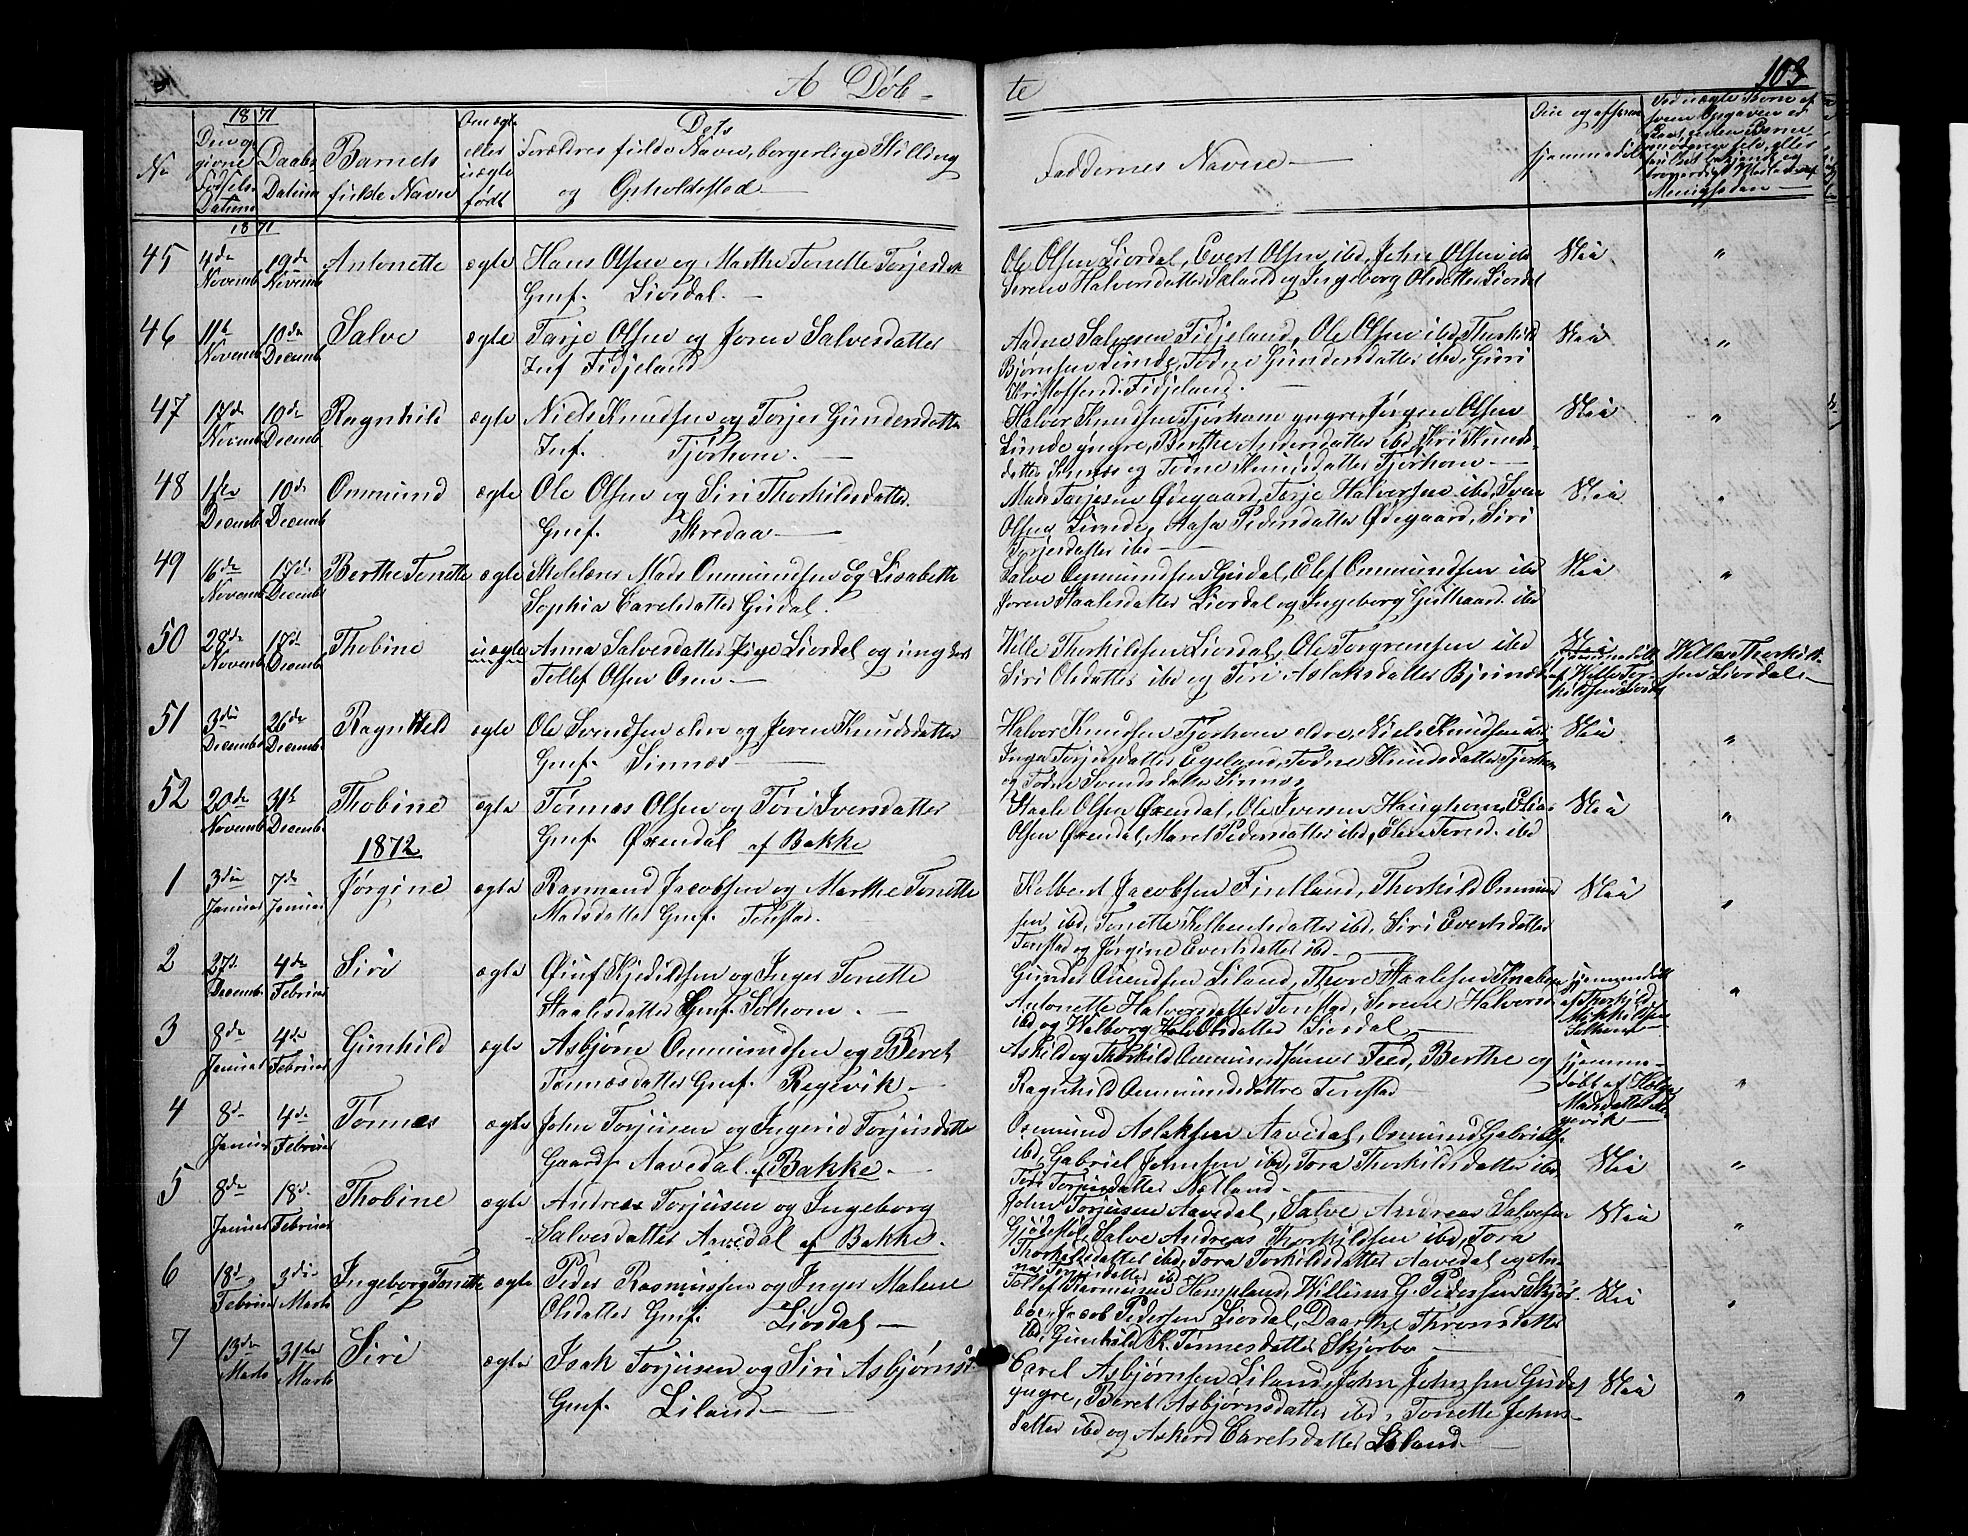 A Døb-
te
103
1871
No
Den og
givne
Fødsels
Datum
Daabs
Datum
Barnets
fulde Navn
Om ægte
eller
uægte
født
Dets
Forældres fulde Navn, borgerlige Stilling
og Opholdssted
Faddernes Navne
Om og af hvem
hjemmedøbt
Menigheden
1871
45 4de Novemb 19de Novemb Antonette ægte Hans Olsen og Marthe Tonette Torjesd
Gmf. Liordal.
Ole Olsen Liordal, Evert Olsen ibd, John Olsen ibd
Serene Halvorsdatter Skland og Ingeborg Olsdatter Liordal
Nei "
46 11te Novemb 10de Decemb Salve ægte Tarje Olsen og Joren Salvesdatter
Inf Fidjeland
Aadne Salvesen Fidjeland, Ole Olsen ibd, Thorkild
Bjørnsen Lunde, Todne Gundersdatter ibd, Guri
Kristoffersd. Fidjeland.
Nei "
47 17de Novemb 10de Decemb Ragnhild ægte Niels Knudsen og Torjer Gundersdatter
Inf. Tjørhom.
Halvor Knudsen Tjørhom yngre, Jørgen Olsen
Lunde yngre, Berthe Andersdatter ibd Siri Knuds-
datter Sinnes og Todne Knudsdatter Tjørhom
Nei "
48 1ste Decemb 10de Decemb Onmund ægte Ole Olsen og Siri Thorkildsdatter.
Gmf. Skredaa
Mads Torjesen Ødegaard, Torje Halvorsen ibd, Sven
Olsen Lunde, Aasa Pedersdatter Ødegaard, Siri
Torjesdatter ibd
Nei "
49 16de Novemb 17de Decemb Berthe Tonette ægte Skolelærer Mads Onmundsen og Lisabeth
Sophia Carelsdatter Gusdal.
Salve Onmundsen Gusdal, Elef Onmundsen ibd
Joren Staalesdatter Liordal og Ingeborg ibd
Nei "
50 28de Novemb 17de Decemb Thobine uægte Anna Salvesdatter Pige Liordal og ungkarl
Tellef Olsen Osen
Welle Thorkildsen Liordal, Ole Torgrimsen ibd
Siri Olsdatter ibd og Siri Aslaksdatter Bjunes
hjemmedøbt
af Welle Tor-
kildsen Liordal
Welle Thorkild-
sen Liordal
51 3die Decemb 26de Decemb Ragnhild ægte Ole Svendsen ældre og Joren Knudsdatter
Gmf. Sinnes
Halvor Knudsen Tjørhom ældre, Niels Knudsen ibd,
Inga Torjusdatter Egeland, Todne Knudsdatter Tjørhom
og Todne Svendsdatter Sinnes
Nei "
52 20de Novemb 31te Decemb Thobine ægte Tønnes Olsen og Tøri Iversdatter
Gmf. Øxendal af Bakke
Staale Olsen Øxendal, Ole Iversen Haughom, Elias
Olsen Øxendal, Maret Pedersdatter ibd, Elen ibd
Nei "
1872
1 3die Januar 7de Januar Jørgine ægte Rasmund Jacobsen og Marthe Tonette
Madsdatter Gmf. Tonstad.
Kolbent Jacobsen Fintland, Thorkild Onmund
sen ibd, Tonette Kolbentsdatter ibd, Siri Evertsdatter
Tonstad og Jørgine Evertsdatter ibd
Nei "
2 27d. Decemb. 4de Februar Siri ægte Øiuf Kjedilsen og Inger Tonette
Staalesdatter Gmf. Solhom.
Gunder Liland, Thore Staalesen Knaben
Antonette Halvorsdatter Tonstad, Serene Halvorsd
ibd og Walborg Olsdatter Liordal
hjemmedøbt
af Thorkild
Mikkelsen
Solhom
"
3 8de Januar 4de Februar Gunhild ægte Asbjørn Onmundsen og Beret
Tønnesdatter Gmf. Regevik
Askild og Thorkild Onmundsønner Tved, Berthe og
Ragnhild Onmundsdøttre Tonstad
hjemme-
døbt af
Madsdatter Re-
gevik
"
4 8de Januar 4de Februar Tønnes ægte John Torjusen og Ingerid Torjusdatter
Gaardf. Aavedal af Bakke.
Osmund Aslaksen Aavedal, Osmund Gabrielsen
ibd, Gabriel Johnsen ibd, Tora Thorkildsdatter ibd,
Siri Torjusdatter Netland
Nei "
5 8de Januar 18d. Februar Thobine ægte Andreas Torjusen og Ingeborg
Salvesdatter Aavedal af Bakke.
John Torjusen Aavedal, Salve Andreas Salvesen
Gjødestøl, Salve Andreas Thorkildsen ibd, Tora
Thorkildsdatter ibd, Tora Torkildsdatter Aavedal og An-
na Torjusdatter ibd
Nei "
6 18d. Februar 3die Marts Ingeborg Tonette ægte Peder Rasmussen og Inger Malene
Olsdatter Gmf. Liordal
Tollef Rasmusen Hompland, Willum G. Pedersen Skjør-
bo, Jacob Pedersen Liordal, Daarthe Thronsdatter
ibd, Gunhild K. Tønnesdatter Skjørbo
Nei "
7 13de Marts 31te Marts Siri ægte Isak Torjusen og Siri Asbjørnsd.
Gmf. Liland
Carel Asbjørnsen Liland, John Johnsen Gusdal
yngre, Beret Asbjørnsdatter ibd, Tonette Johns-
datter ibd og Askerd Carelsdatter Liland
Nei "